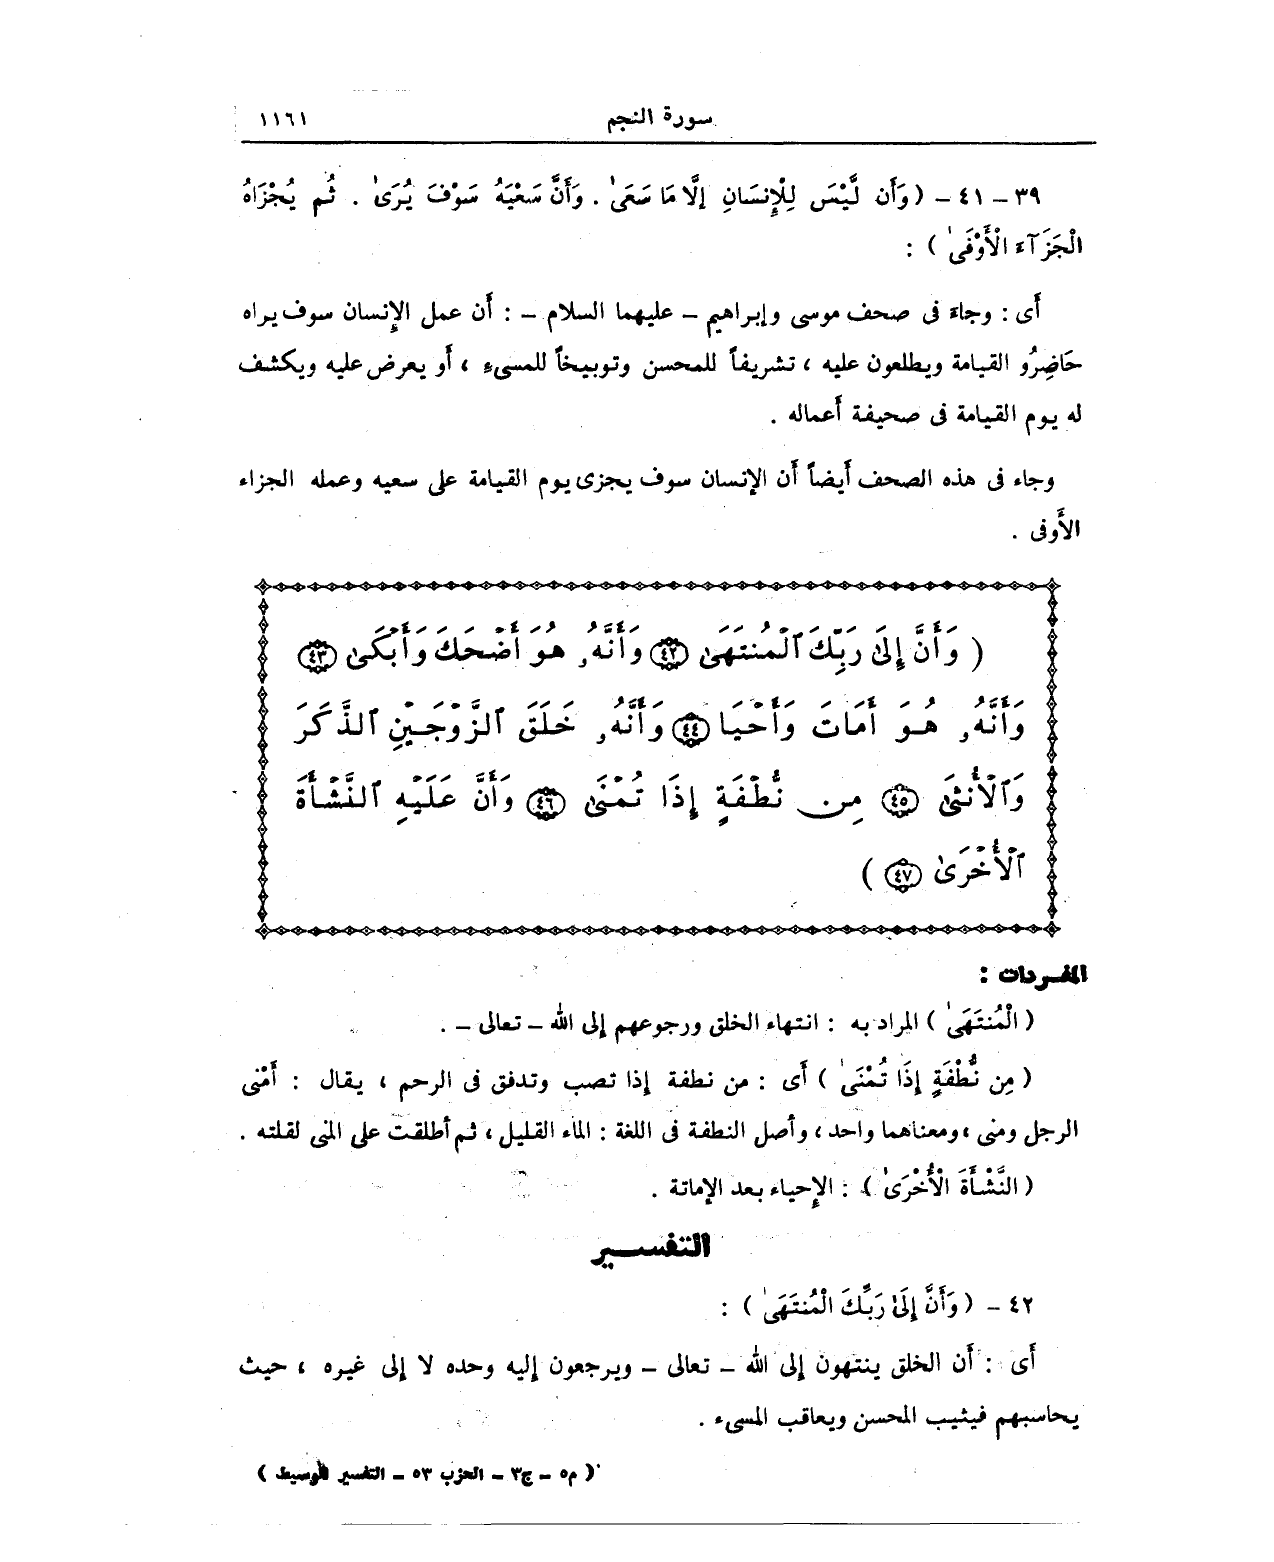 سورة النجم ١١٦١
٣٩ – ٤١ – ( وَأَن لَّيْسَ لِلْإِنسَانِ إِلَّا مَا سَعَىٰ . وَأَنَّ سَعْيَهُ سَوْفَ يُرَىٰ . ثُم يُجْزَاهُ
الْجَزَآءَ الْأَوْفَىٰ ) :
أَى : وجاءَ فى صحف موسى وإبراهيم – عليهما السلام – : أَن عمل الإِنسان سوف يراه
حَاضِرُو القيامة ويطلعون عليه ، تشريفاً للمحسن وتوبيخاً للمسىءِ ، أَو يعرض عليه ويكشف
له يوم القيامة فى صحيفة أَعماله .
وجاء فى هذه الصحف أَيضاً أَن الإِنسان سوف يجزى يوم القيامة على سعيه وعمله الجزاء
الأَوفى .
( وَأَنَّ إِلَىٰ رَبِّكَ ٱلْمُنتَهَىٰ ٤٢ وَأَنَّهُۥ هُوَ أَضْحَكَ وَأَبْكَىٰ ٤٣
وَأَنَّهُۥ هُوَ أَمَاتَ وَأَحْيَا ٤٤ وَأَنَّهُۥ خَلَقَ ٱلزَّوْجَيْنِ ٱلذَّكَرَ
وَٱلْأُنثَىٰ ٤٥ مِن نُّطْفَةٍ إِذَا تُمْنَىٰ ٤٦ وَأَنَّ عَلَيْهِ ٱلنَّشْأَةَ
ٱلْأُخْرَىٰ ٤٧ )
المفـردات :
( الْمُنتَهَىٰ ) المراد به : انتهاء الخلق ورجوعهم إلى الله – تعالى – .
( مِن نُّطْفَةٍ إِذَا تُمْنَىٰ ) أَى : من نطفة إذا تصب وتدفق فى الرحم ، يقال : أَمْنى
الرجل ومنى ، ومعناهما واحد ، وأصل النطفة فى اللغة : الماء القليل ، ثم أطلقت على المنى لقلته .
( النَّشْأَةَ الْأُخْرَىٰ ) : الإِحياء بعد الإماتة .
التفســير
٤٢ – ( وَأَنَّ إِلَىٰ رَبِّكَ الْمُنتَهَىٰ ) :
أَى : أَن الخلق ينتهون إلى الله – تعالى – ويرجعون إليه وحده لا إلى غيره ، حيث
يحاسبهم فيثيب المحسن ويعاقب المسىء .
( م٥ – ج٣ – الحزب ٥٣ – التفسير الوسيط )